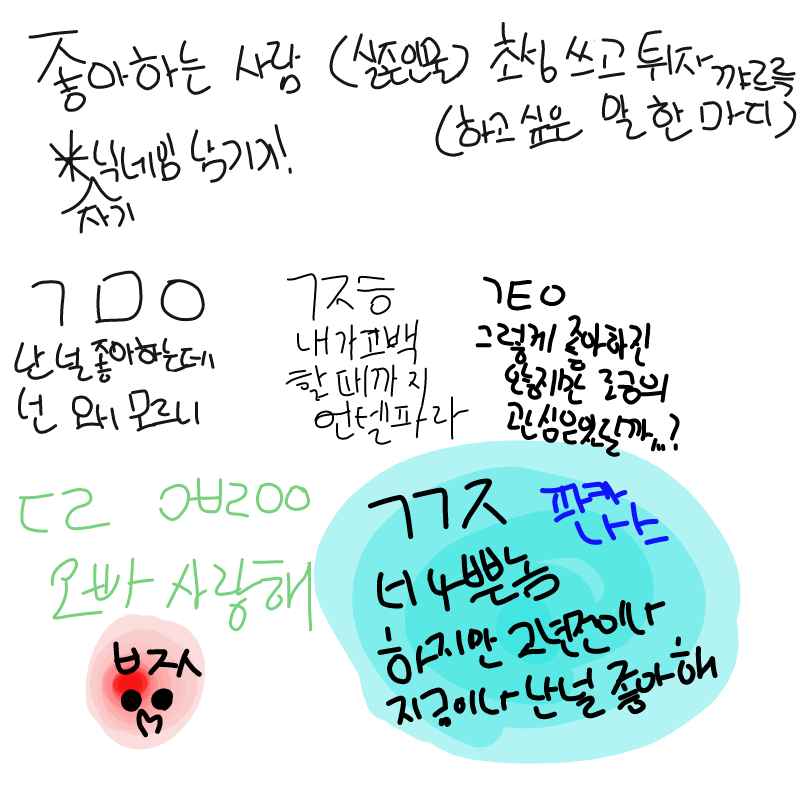 좋아하는 사람 (실존인물) 초성 쓰고 튀자 꺄르륵
(하고 싶은 말 한 마디)
*닉네임 남기기!
자기
ㄱㅁㅇ
난 널 좋아하는데
넌 왜 모르니
ㄱㅈㅎ
내가 고백
할 때까지
언텔파라
ㄱㅌㅇ
그렇게 좋아하진
않지만 조금의
관심은있달까,,,?
ㄷㄹ ㅇㅂㄹㅇㅇ
오빠 사랑해
ㅂㅈㅅ
ㄱㄱㅈ
너 나쁜놈
하지만 2년전이나
지금이나 난 널 좋아해